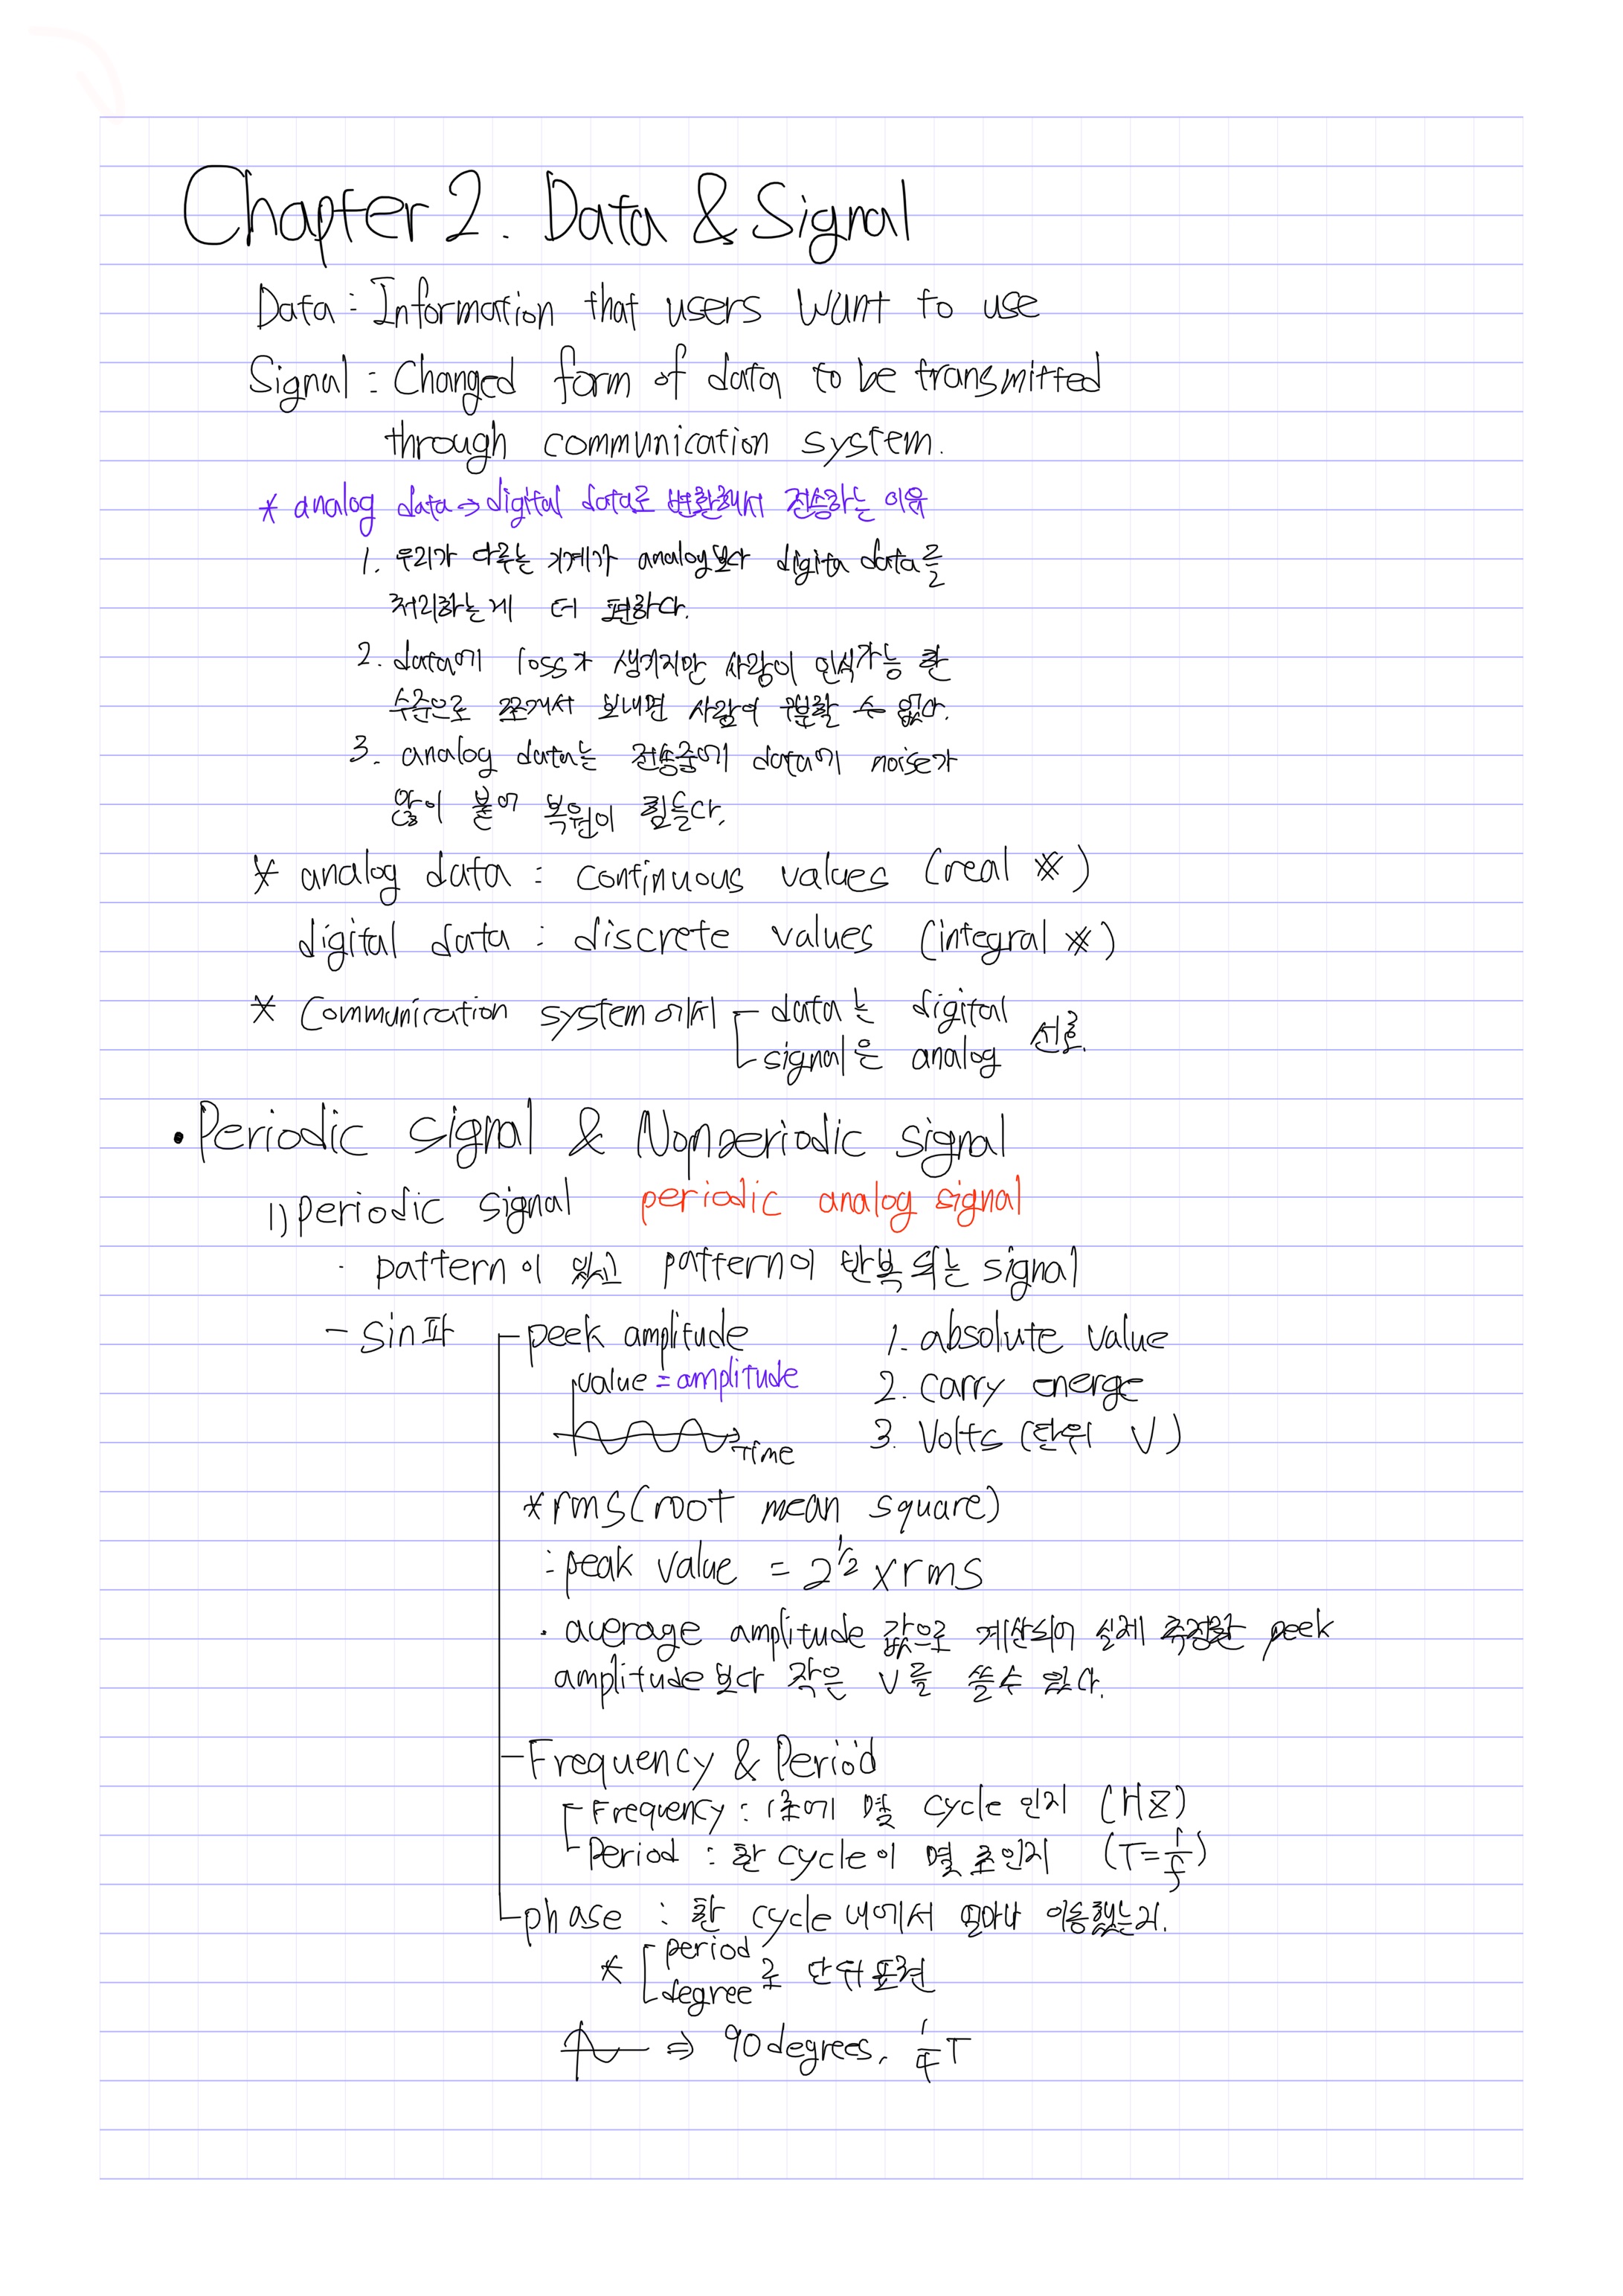 Chapter 2. Data & Signal
Data : Information that users want to use
Signal : Changed form of data to be transmitted
through communication system.
* analog data → digital data로 변환해서 전송하는 이유
1. 우리가 다루는 기계가 analog보다 digita data를
처리하는게 더 편하다.
2. data에 loss가 생기지만 사람이 인식가능 한
수준으로 쪼개서 보내면 사람이 구분할 수 없다.
3. analog data는 전송중에 data에 noise가
많이 붙어 복원이 힘들다.
* analog data : continuous values (real #)
digital data : discrete values (integral #)
* Communication system에서 data는 digital
signal은 analog 선호.
• Periodic signal & Nonperiodic signal
1) periodic signal periodic analog signal
· pattern이 있고 pattern이 반복되는 signal
- sin파 - peek amplitude 1. absolute value
value = amplitude 2. carry energe
Time 3. Volts (단위 V)
* rms (root mean square)
: peak value = 2^1/2 x rms
· average amplitude 값으로 계산되어 실제 측정한 peek
amplitude보다 작은 V를 쓸수 있다.
- Frequency & Period
Frequency : 1초에 몇 cycle 인지 (HZ)
Period : 한 cycle이 몇 초인지 (T=1/f)
phase : 한 cycle 내에서 얼마나 이동했는지.
* period
degree 로 단위 표현
⇒ 90 degrees, 1/4 T